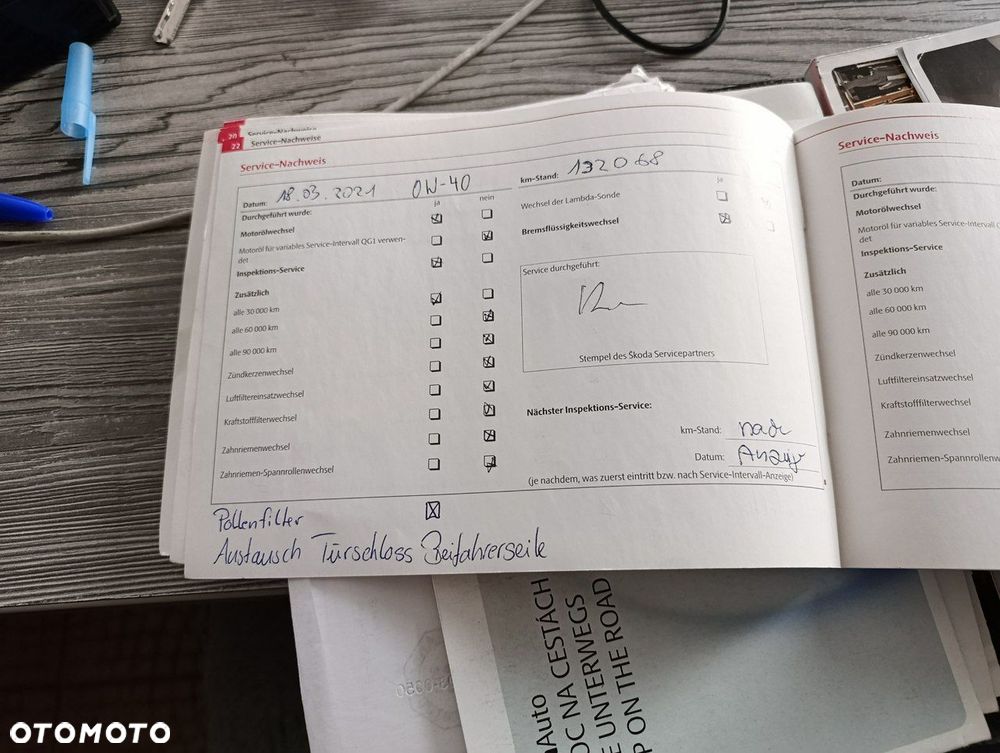 20 Service-Nachweise
22 Service-Nachweise
Service-Nachweis
Datum: 18.03.2021 0W-40
ja nein
Durchgeführt wurde:
Motorölwechsel
Motoröl für variables Service-Intervall QG1 verwen-
det
Inspektions-Service
Zusätzlich
alle 30 000 km
alle 60 000 km
alle 90 000 km
Zündkerzenwechsel
Luftfiltereinsatzwechsel
Kraftstofffilterwechsel
Zahnriemenwechsel
Zahnriemen-Spannrollenwechsel
Pollenfilter
Austausch Türschloss Beifahrerseite
km-Stand: 132068
ja
Wechsel der Lambda-Sonde
Bremsflüssigkeitswechsel
Service durchgeführt:
Stempel des Škoda Servicepartners
Nächster Inspektions-Service:
km-Stand: nach
Datum: Anzeige
(je nachdem, was zuerst eintritt bzw. nach Service-Intervall-Anzeige)
Service-Nachweis
Datum:
Durchgeführt wurde:
Motorölwechsel
Motoröl für variables Service-Intervall
det
Inspektions-Service
Zusätzlich
alle 30 000 km
alle 60 000 km
alle 90 000 km
Zündkerzenwechsel
Luftfiltereinsatzwechsel
Kraftstofffilterwechsel
Zahnriemenwechsel
Zahnriemen-Spannrollenw
Auto
OC NA CESTÁCH
E UNTERWEGS
P ON THE ROAD
OTOMOTO